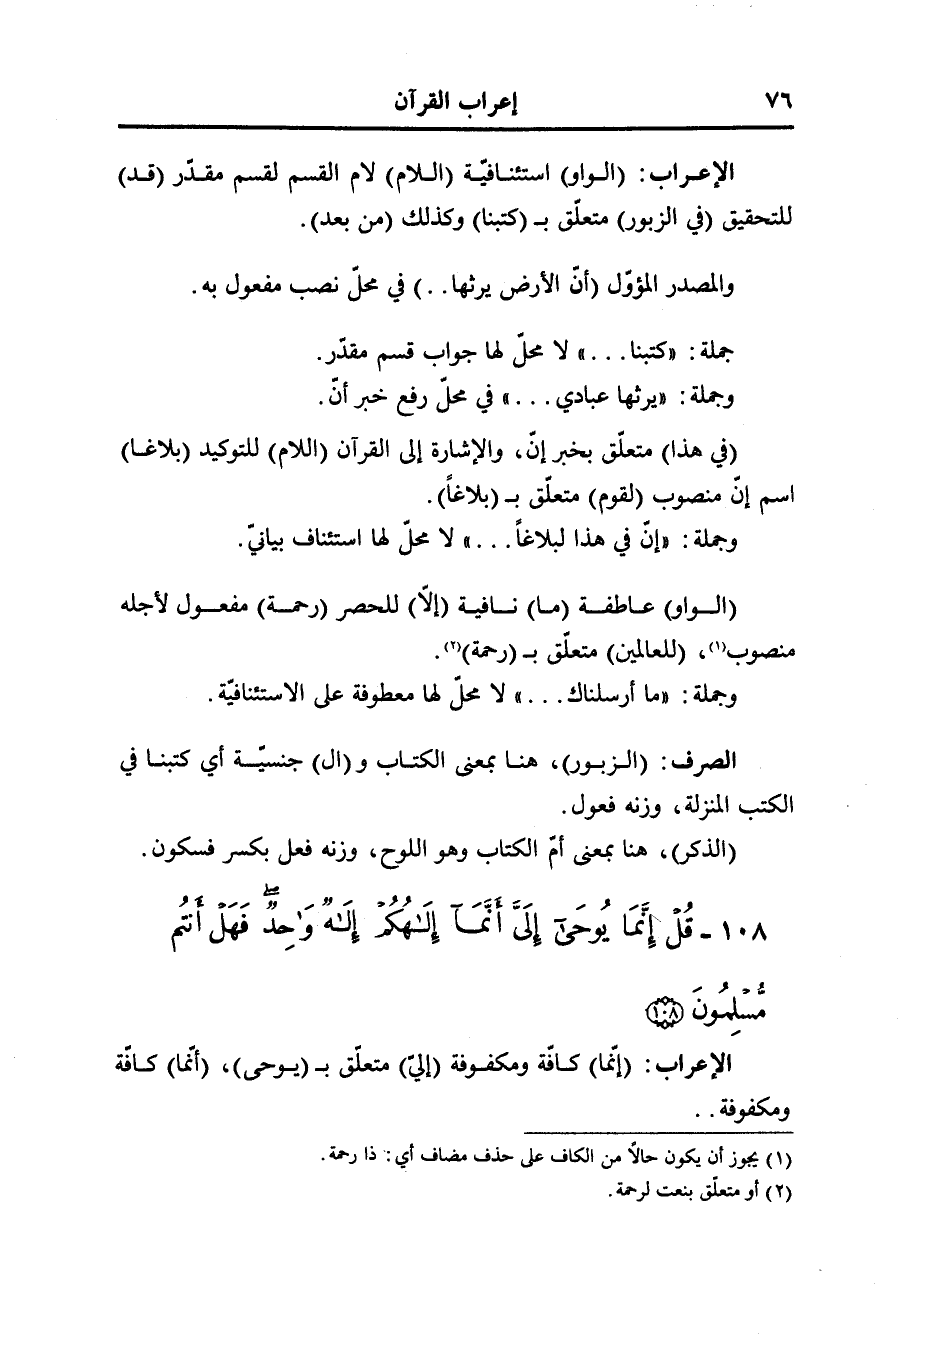 ٧٦ إعراب القرآن
الإعـراب: (الـواو) استئنـافيّـة (الـلام) لام القسم لقسم مقـدّر (قـد)
للتحقيق (في الزبور) متعلّق بـ (كتبنا) وكذلك (من بعد).
والمصدر المؤوّل (أنّ الأرض يرثها..) في محلّ نصب مفعول به.
جملة: «كتبنا...» لا محلّ لها جواب قسم مقدّر.
وجملة: «يرثها عبادي...» في محلّ رفع خبر أنّ.
(في هذا) متعلّق بخبر إنّ، والإشارة إلى القرآن (اللام) للتوكيد (بلاغـا)
اسم إنّ منصوب (لقوم) متعلّق بـ (بلاغاً).
وجملة: «إنّ في هذا لبلاغاً...» لا محلّ لها استئناف بيانيّ.
(الـواو) عـاطفـة (مـا) نـافيـة (إلّا) للحصر (رحمـة) مفعـول لأجله
منصوب(١)، (للعالمين) متعلّق بـ (رحمة)(٢).
وجملة: «ما أرسلناك...» لا محلّ لها معطوفة على الاستئنافيّة.
الصرف: (الـزبـور)، هنـا بمعنى الكتـاب و(ال) جنسيّـة أي كتبنـا في
الكتب المنزلة، وزنه فعول.
(الذكر)، هنا بمعنى أمّ الكتاب وهو اللوح، وزنه فعل بكسر فسكون.
١٠٨ - قُلْ إِنَّمَا يُوحَىٰٓ إِلَيَّ أَنَّمَآ إِلَـٰهُكُمْ إِلَـٰهٌ وَٰحِدٌ ۖ فَهَلْ أَنتُم
مُّسْلِمُونَ ١٠٨
الإعراب: (إنّما) كـافّة ومكفـوفة (إليّ) متعلّق بـ (يـوحى)، (أنّما) كـافّة
ومكفوفة..
(١) يجوز أن يكون حالاً من الكاف على حذف مضاف أي: ذا رحمة.
(٢) أو متعلّق بنعت لرحمة.